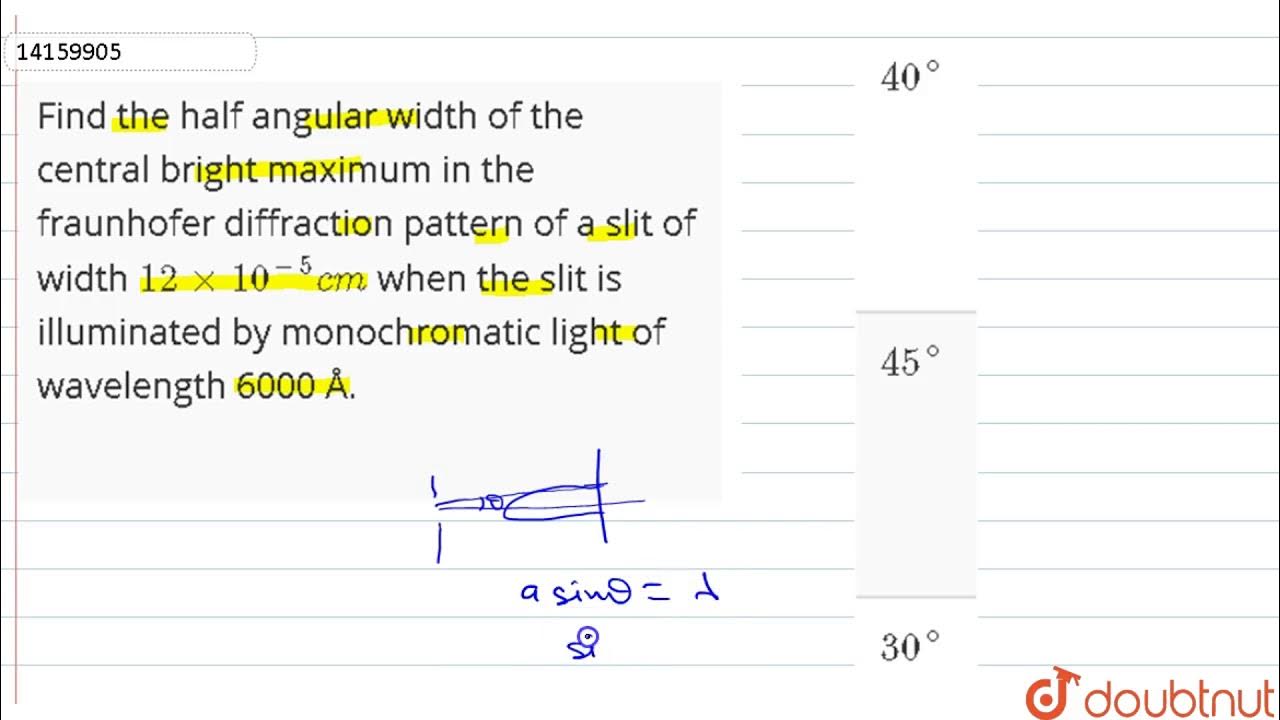 14159905
Find the half angular width of the
central bright maximum in the
fraunhofer diffraction pattern of a slit of
width 12 × 10⁻⁵ cm when the slit is
illuminated by monochromatic light of
wavelength 6000 Å.
θ
a sinθ = λ
si
40°
45°
30°
doubtnut